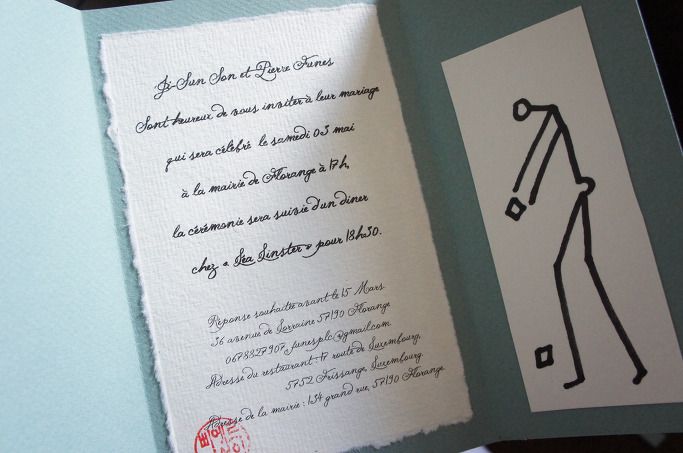 Ji-Sun Son et Pierre Funes
Sont heureux de vous inviter à leur mariage
qui sera célébré le samedi 03 mai
à la mairie de Florange à 17h,
la cérémonie sera suivie d'un diner
chez « Léa Linster » pour 18h30.
Réponse souhaitée avant le 15 Mars
36 avenue de Lorraine 57190 Florange
0678827907, funesplc@gmail.com
Adresse du restaurant : 17 route de Luxembourg,
5752 Frissange, Luxembourg
Adresse de la mairie : 134 grand rue, 57190 Florange